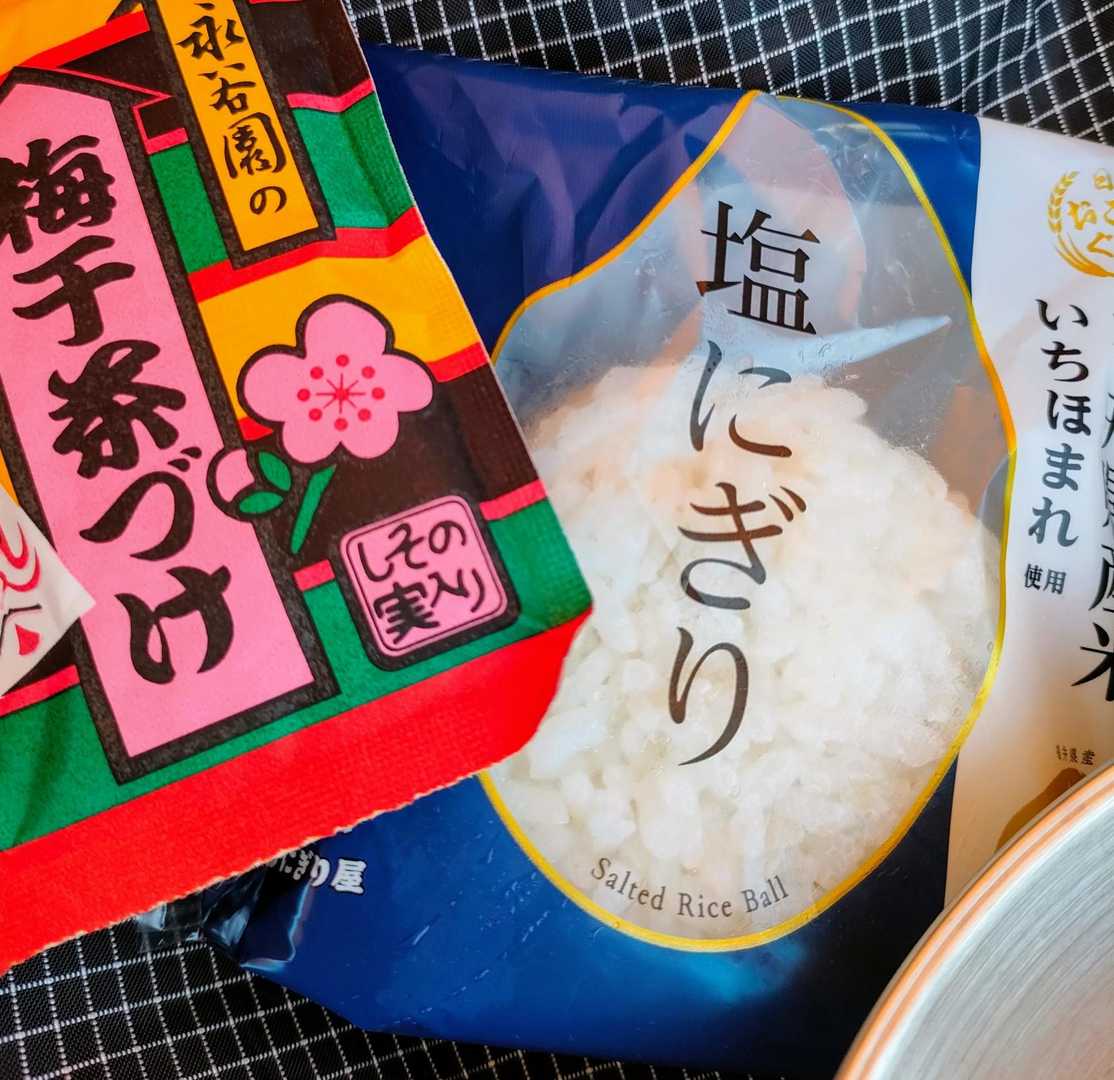 永谷園の
梅干茶づけ
しその
実入り
塩にぎり
Salted Rice Ball
いちほまれ
使用
県産米
にぎり屋